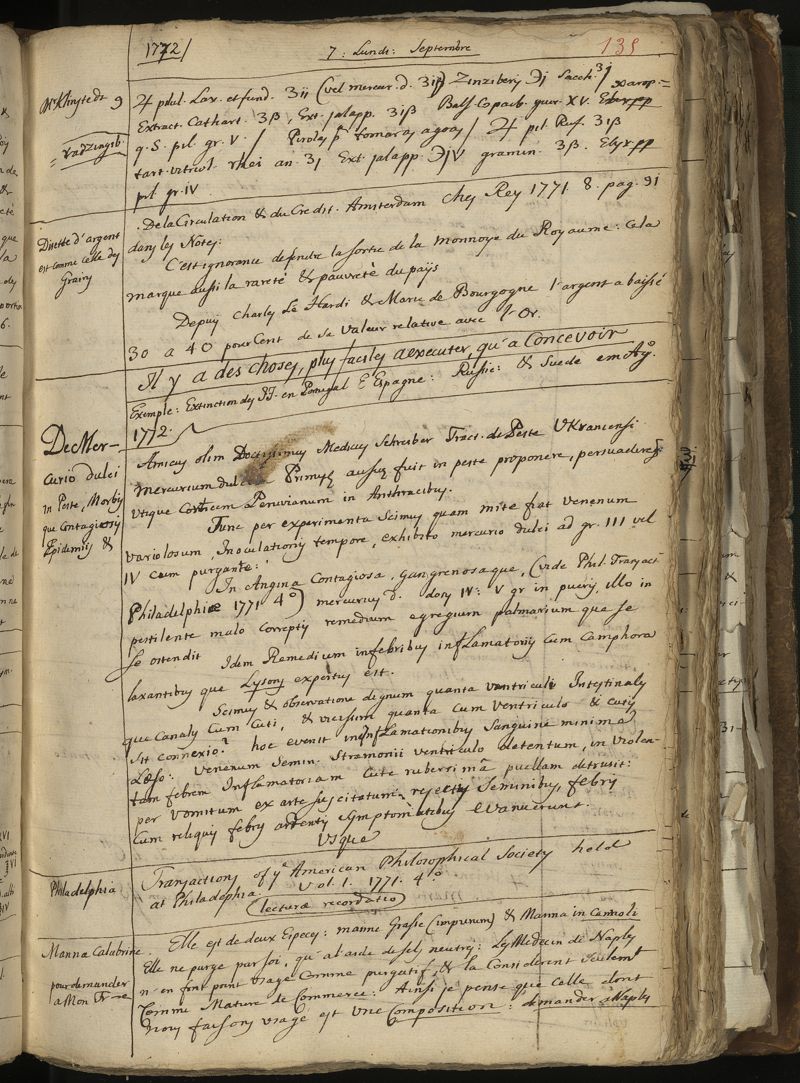 1772/
7: Lundi: Septembre
135
♃ pulv. Lax. et fund. ʒii (vel mercur. d. ʒiβ) Zinziber Эj Sacch. ʒj
Extract. Cathart. ʒβ, Ext. jalapp. ʒiβ Bals. Copaib. gutt XV.
q. S. pil. gr. V. / / ♃ pil. Ruf. ʒiβ
tart. vitriol. rhei an. ʒj Ext. jalapp. ЭjV gramin. ʒβ.
pil. gr. IV.
Disette d'argent
est comme celle des
Grains
De la Circulation & du Credit. Amsterdam chez Rey 1771. 8. pag. 91
dans les Notes:
C'est ignorance defendre la sortie de la monnoye du Royaume. Cela
marque aussi la rareté & pauvreté du païs
Depuis Charles Le Hardi & Marie de Bourgogne l'argent a baissé
30 a 40 pour Cent de sa valeur relative avec l'Or.
Il y a des choses, plus faciles a executer, qu'a Concevoir
Exemple: Extinction des JJ. en Portugal & Espagne: Russie: & Suede em
1772.
De Mer-
curio dulci
in Peste, Morbis
que Contagiosis
Epidemiis &
Amicus olim Doctissimus Medicus Schreiber Tract. de Peste Ukraniensi
mercurium dulcem Primus ausus fuit in peste proponere, persuadere
utique Corticem Peruvianum in Anthracibus.
Tunc per experimenta Scimus quam mite fiat venenum
variolosum, Inoculationis tempore, exhibito mercurio dulci ad gr. III vel
IV cum purgante:
In Angina Contagiosa, gangrenosaque, (vide Phil. Transact.
Philadelphiæ 1771 4°) mercurius d. dosis IV: V gr in pueris, illo in
pestilente malo correptis remedium egregium palmarium que se
se ostendit Idem Remedium in febribus inflamatoriis Cum Camphora
laxantibus que Lysons expertus est.
Scimus & observatione dignum quanta ventriculi Intestinalis
que Canalis Cum Cuti, & vicissim quanta cum ventriculo & cutis
sit connexio. hoc evenit in inflamationibus Sanguine minima
Læso: Venenum Semin. Stramonii ventriculo detentum, in violen-
tam febrem Inflamatoriam Cute ruberrima puellam detrusit:
per vomitum ex arte suscitatum rejectis Seminibus, febris
Cum reliquis febris ardentis symptomatibus evanuerunt.
Usque
Philadelphia
Transactions of ye American Philosophical Society held
at Philadelphia. Vol. 1. 1771. 4°.
(lecturæ recordatio)
Manna Calabrine.
pour demander
a Mon Fr—e
Elle est de deux Especes: manne Grasse (impurum) & Manna in Cannoli
Elle ne purge par soi, qu'a l'aide de sels neutres: Les Medecin de Naples
n'en font point usage Comme purgatif, & la Considerent seulemt
Comme Matiere de Commerce: Ainsi je pense que Celle dont
nous faisons usage est une Composition: demander a Naples